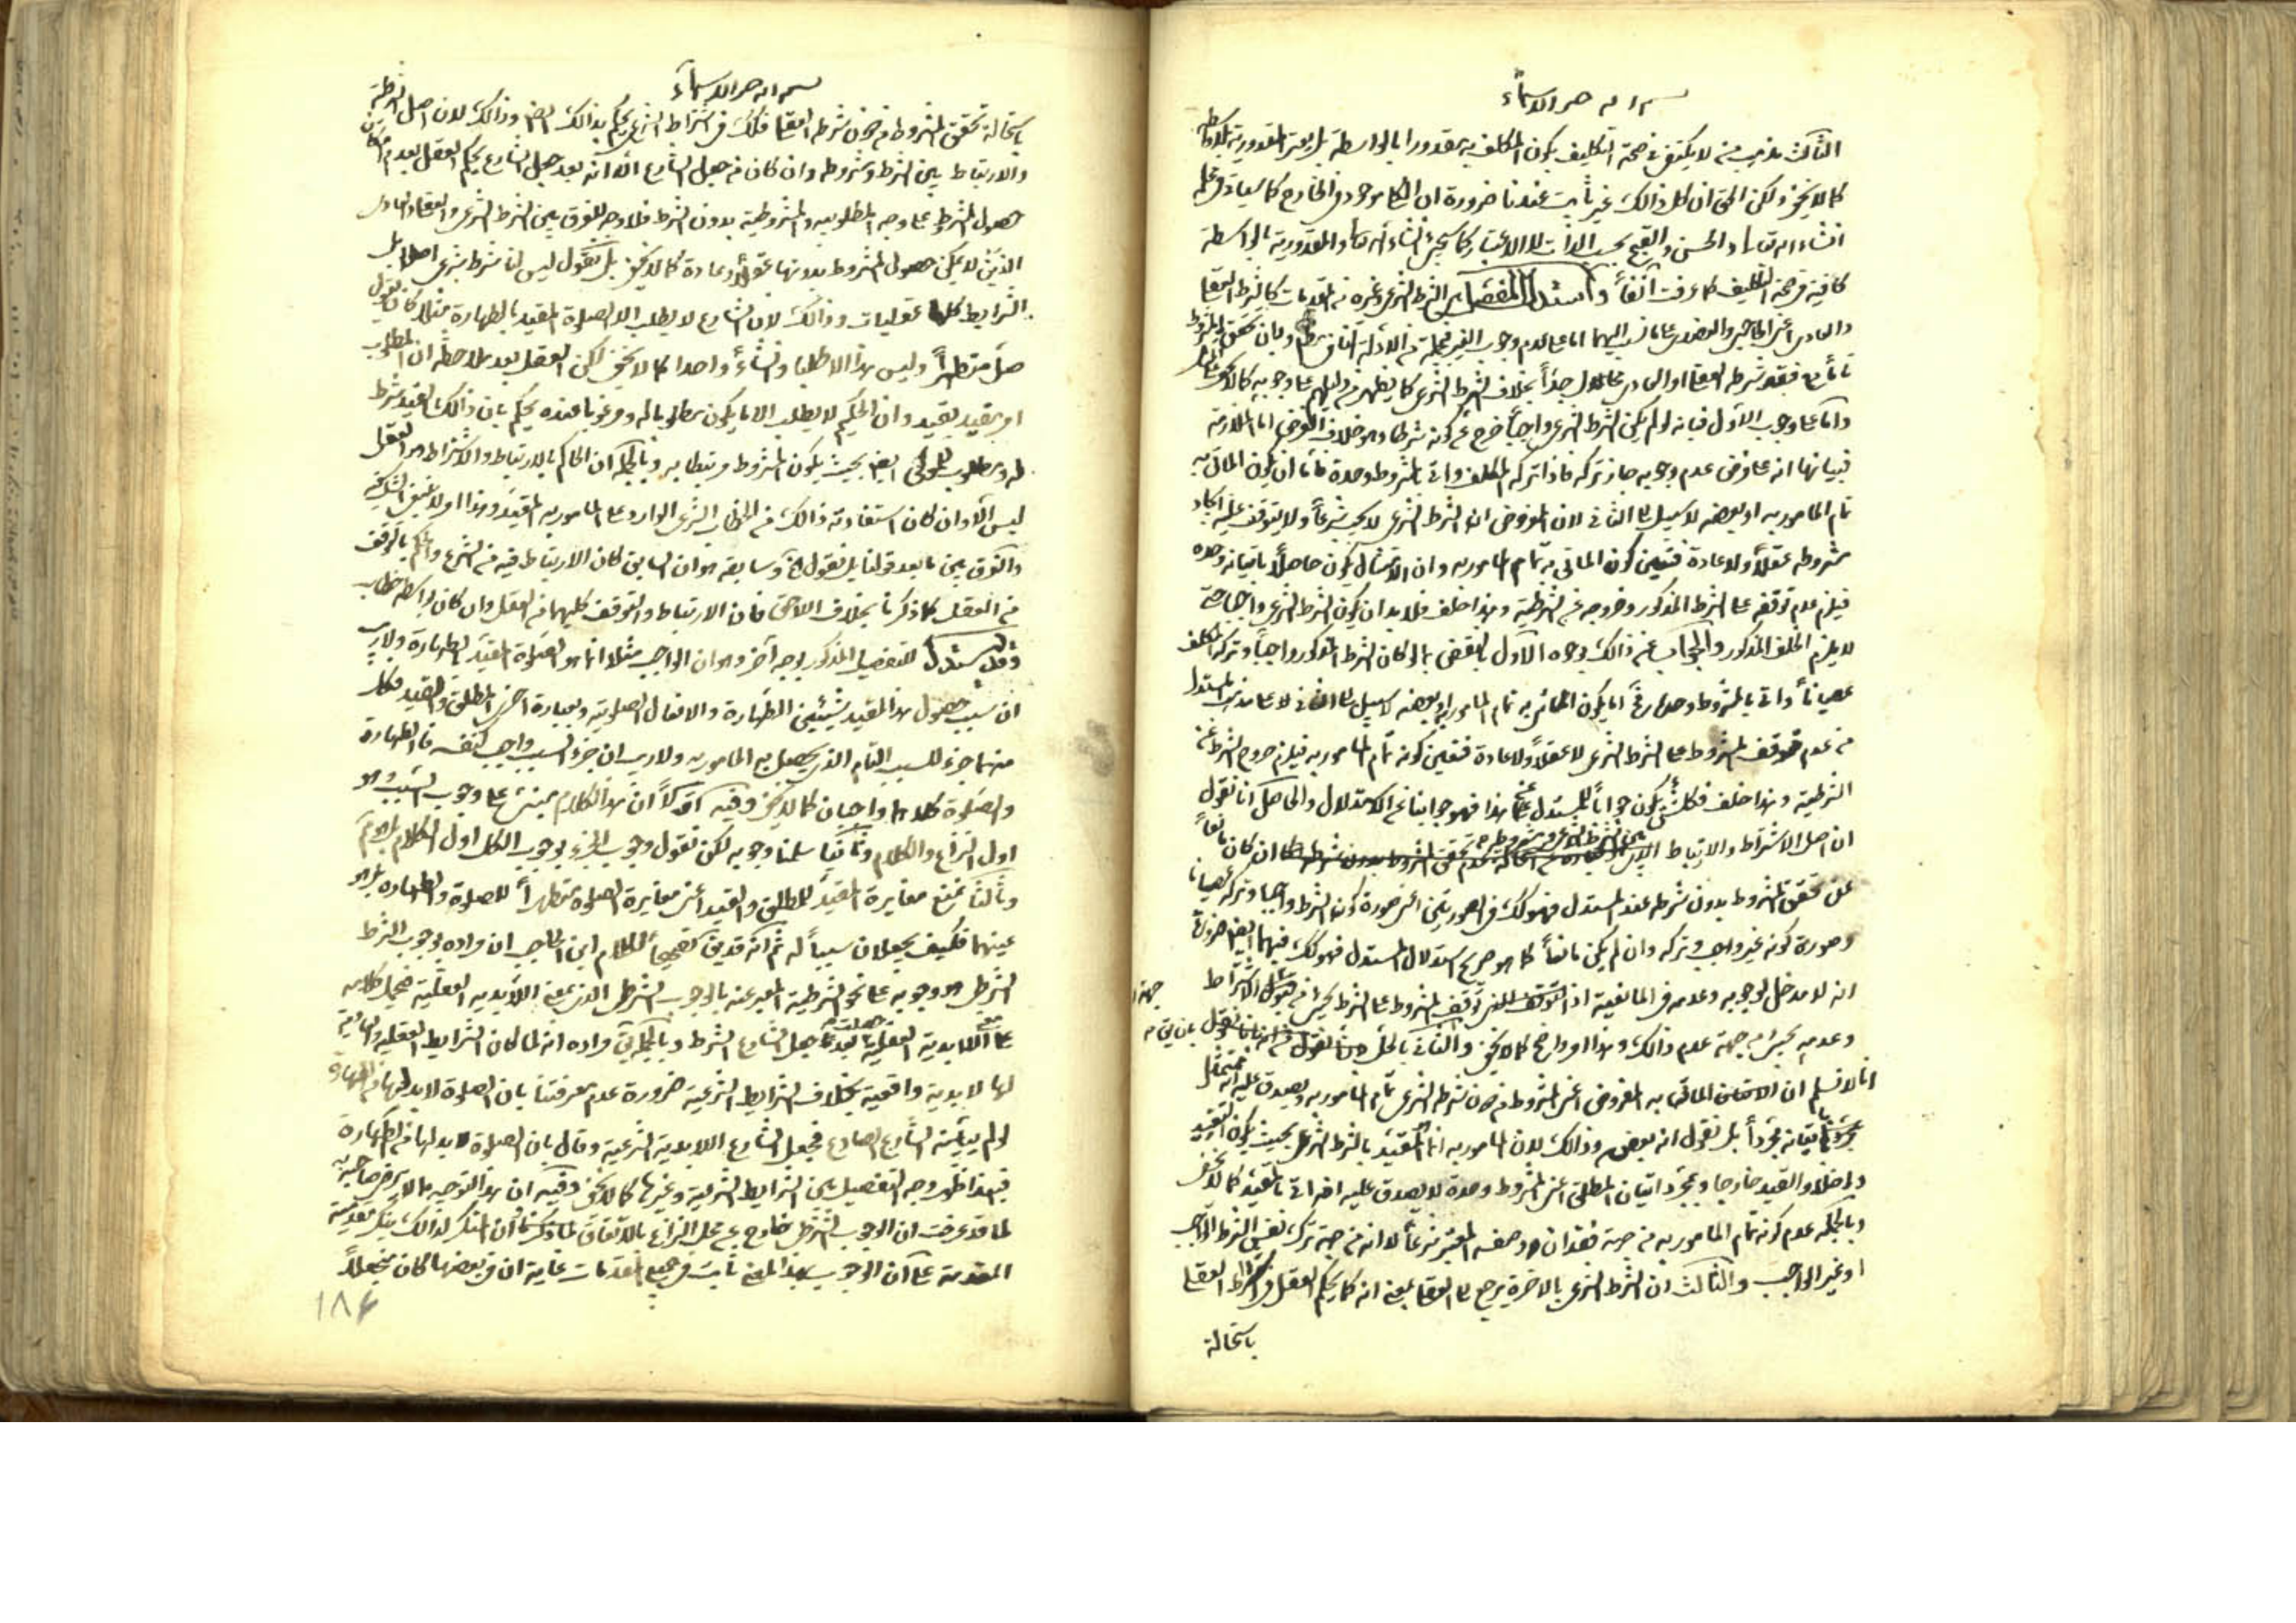 بسم الله خير الاسماء
الثالث مذهب من لا يكتفى فى صحة التكليف بكون المكلف به مقدورا بالواسطة بل يعتبر المقدورية بلا واسطة
كما لا يخفى ولكن الحق ان كل ذالك غير ثابت عندنا ضرورة ان الكلى موجود فى الخارج كما سيأتى فى محله
انشاء الله تعالى والحسن والقبح بحسب الذات لا الاعتبار كما سيجىء انشاء الله تعالى والمقدورية بالواسطة
كافية فى صحة التكليف كما عرفت آنفاً واستدل المفصل بين الشرط الشرعى وغيره من المقدمات كالشرط العقلى
والعادى اعنى الحاجبى والعضدى على ما نسب اليهما اما على عدم وجوب الغير فبجملة من الادلة وبان تحقق المشروط
تاماً مع فقد شرطه العقلى او العادى محال جداً بخلاف الشرط الشرعى كما يظهر من دليلهم على وجوبه كما لا يخفى
واما على وجوب الاول فبانه لو لم يكن الشرط الشرعى واجباً خرج عن كونه شرطا وهو خلاف الفرض اما الملازمة
فبيانها انه على فرض عدم وجوبه جاز تركه فاذا تركه المكلف واتى بالمشروط وحده فاما ان يكون الماتى به
تمام المامور به او بعضه لا سبيل الى الثانى لان المفروض ان الشرط الشرعى لا يجب شرعاً ولا يتوقف عليه ايجاد
مشروطه عقلاً ولا عادة فتعين كون الماتى به تمام المامور به وان الامتثال يكون حاصلاً باتيانه وحده
فيلزم عدم توقفه على الشرط المذكور وخروجه عن الشرطية وهذا خلف فلا بد ان يكون الشرط الشرعى واجبا حتى
لا يلزم الخلف المذكور والجواب عن ذالك بوجوه الاول بالنقض بما لو كان الشرط المذكور واجباً وتركه المكلف
عصياناً واتى بالمشروط وحده فاما يكون الماتى به تمام المامور به او بعضه لا سبيل الى الثانى لا على مذهب المستدل
من عدم توقف المشروط على الشرط الشرعى لا عقلاً ولا عادة فتعين كونه تمام المامور به فيلزم خروج الشرط عن
الشرطية وهذا خلف فكلما يكون جواباً للمستدل عن هذا فهو جوابنا عن الاستدلال والحاصل انا نقول
ان اصل الاشتراط والارتباط بين الشرط الشرعى ومشروطه ان كان مانعاً
عن تحقق المشروط بدون شرطه عند المستدل فهو كذلك فى الصورتين اى صورة كون الشرط واجبا وتركه عصيانا
وصورة كونه غير واجب وتركه وان لم يكن مانعاً كما هو صريح استدلال المستدل فهو كذلك فيهما ايضا ضرورة
انه لا مدخل لوجوبه وعدمه فى المانعية اذ توقف المشروط على الشرط يجىء من قبل الاشتراط
وعدمه يجىء من جهة عدم ذالك وهذا امر واضح كما لا يخفى والثانى بالحل بان نقول
انا لا نسلم ان الماتى به المفروض اعنى المشروط من دون شرطه الشرعى تمام المامور به ويصدق عليه انه ممتثل
باتيانه مجرداً بل نقول انه بعض وذالك لان المامور به انما هو المقيد بالشرط الشرعى بحيث يكون التقييد
داخلاً والقيد خارجا وبمجرد اتيان المطلق اعنى المشروط وحده لا يصدق عليه انه اتى بالمقيد كما لا يخفى
وبالجملة عدم كونه تمام المامور به من جهة فقدان وصفه المعتبر شرعاً لا انه من جهة ترك نفس الشرط الواجب
او غير الواجب والثالث ان الشرط الشرعى بالاخرة يرجع الى العقلى بمعنى انه كما يحكم العقل فى الشرط العقلى
باستحالة
بسم الله خير الاسماء
باستحالة تحقق المشروط من دون شرطه العقلى فكذلك فى اشتراط الشرعى يحكم بذالك ايضا وذالك لان اصل الشرطية
والارتباط بين الشرط ومشروطه وان كان من جعل الشارع الا انه بعد جعل الشارع يحكم العقل بعدم امكان
حصول المشروط على وجه المطلوبية والمشروطية بدون الشرط فلا وجه للفرق بين الشرط الشرعى والعقلى والعادى
الذين لا يمكن حصول المشروط بدونها عقلاً وعادة كما لا يخفى بل نقول ليس لنا شرط شرعى اصلا بل
الشرايط كلها عقليات وذالك لان الشارع لا يطلب الا الصلوة المقيد بالطهارة مثلا كان يقول
صل متطهراً وليس هذا الا طلبا وانشاءً واحدا كما لا يخفى لكن العقل بعد ملاحظة ان المطلوب
امر مقيد بقيد وان الحكيم لا يطلب الا ما يكون مطلوبا له ومرغوبا عنده يحكم بان ذالك القيد شرط
له ومطلوب للمولى ايضا بحيث يكون المشروط مرتبطا به وبالجملة ان الحاكم بالارتباط والاشتراط هو العقل
ليس الا وان كان استفادته ذالك من الخطاب الشرعى الوارد على المامور به المقيد وهذا امر لا ينبغى الشك فيه
والفرق بين ما بعد قولنا بل نقول الخ وسابقه هو ان السابق كان الارتباط فيه من الشرع والحكم بالتوقف
من العقل كما ذكرنا بخلاف اللاحق فان الارتباط والتوقف كليهما من العقل وان كان بواسطة خطابه
وقد يستدل للتفصيل المذكور بوجه آخر وهو ان الواجب مثلا انما هو الصلوة المقيد بالطهارة ولا ريب
ان سبب حصول هذا المقيد شيئين الطهارة والافعال الصلوتية وبعبارة اخرى المطلق والقيد فكل
منهما جزء للسبب التام الذى يحصل به المامور به ولا ريب ان جزء السبب واجب كنفسه فالطهارة
والصلوة كلاهما واجبان كما لا يخفى وفيه اولاً ان هذا الكلام يبتنى على وجوب السبب وهو
اول النزاع والكلام وثانياً سلمنا وجوبه لكن نقول وجوب الجزء بوجوب الكل اول الكلام
وثالثاً نمنع مغايرة المقيد للمطلق والقيد اعنى مغايرة الصلوة متطهراً للصلوة والطهارة بل هو
عينهما فكيف يجعلان سبباً له ثم انه قد يق تصحيحاً لكلام ابن الحاجب ان مراده بوجوب الشرط
الشرطى هو وجوبه على نحو الشرطية المعبر عنه بالوجوب الشرطى الذى بمعنى اللابدية العقلية فيحمل كلامه
على اللابدية العقلية بعد جعل الشارع الشرط وبالجملة مراده انه لما كان الشرايط العقلية والعادية
لها لا بدية واقعية بخلاف الشرايط الشرعية ضرورة عدم معرفتنا بان الصلوة لا بد لها من الطهارة
لو لم يبينه الشارع فجعل الشارع اللابدية الشرعية وقال بان الصلوة لا بد لها من الطهارة
فبهذا ظهر وجه التفصيل بين الشرايط الشرعية وغيرها كما لا يخفى وفيه ان هذا التوجيه مما لا يرضى صاحبه
لما قد عرفت ان الوجوب الشرطى خارج عن محل النزاع بالاتفاق لما ذكرنا ان المنكر لذالك ينكر مقدمية
المقدمة على ان الوجوب بهذا المعنى ثابت فى جميع المقدمات غاية ان فى بعضها كان بجعل
١٨٤